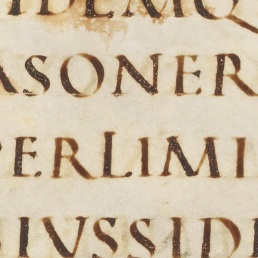 IDEMQ
ASONER
PERLIMI
IVSSID